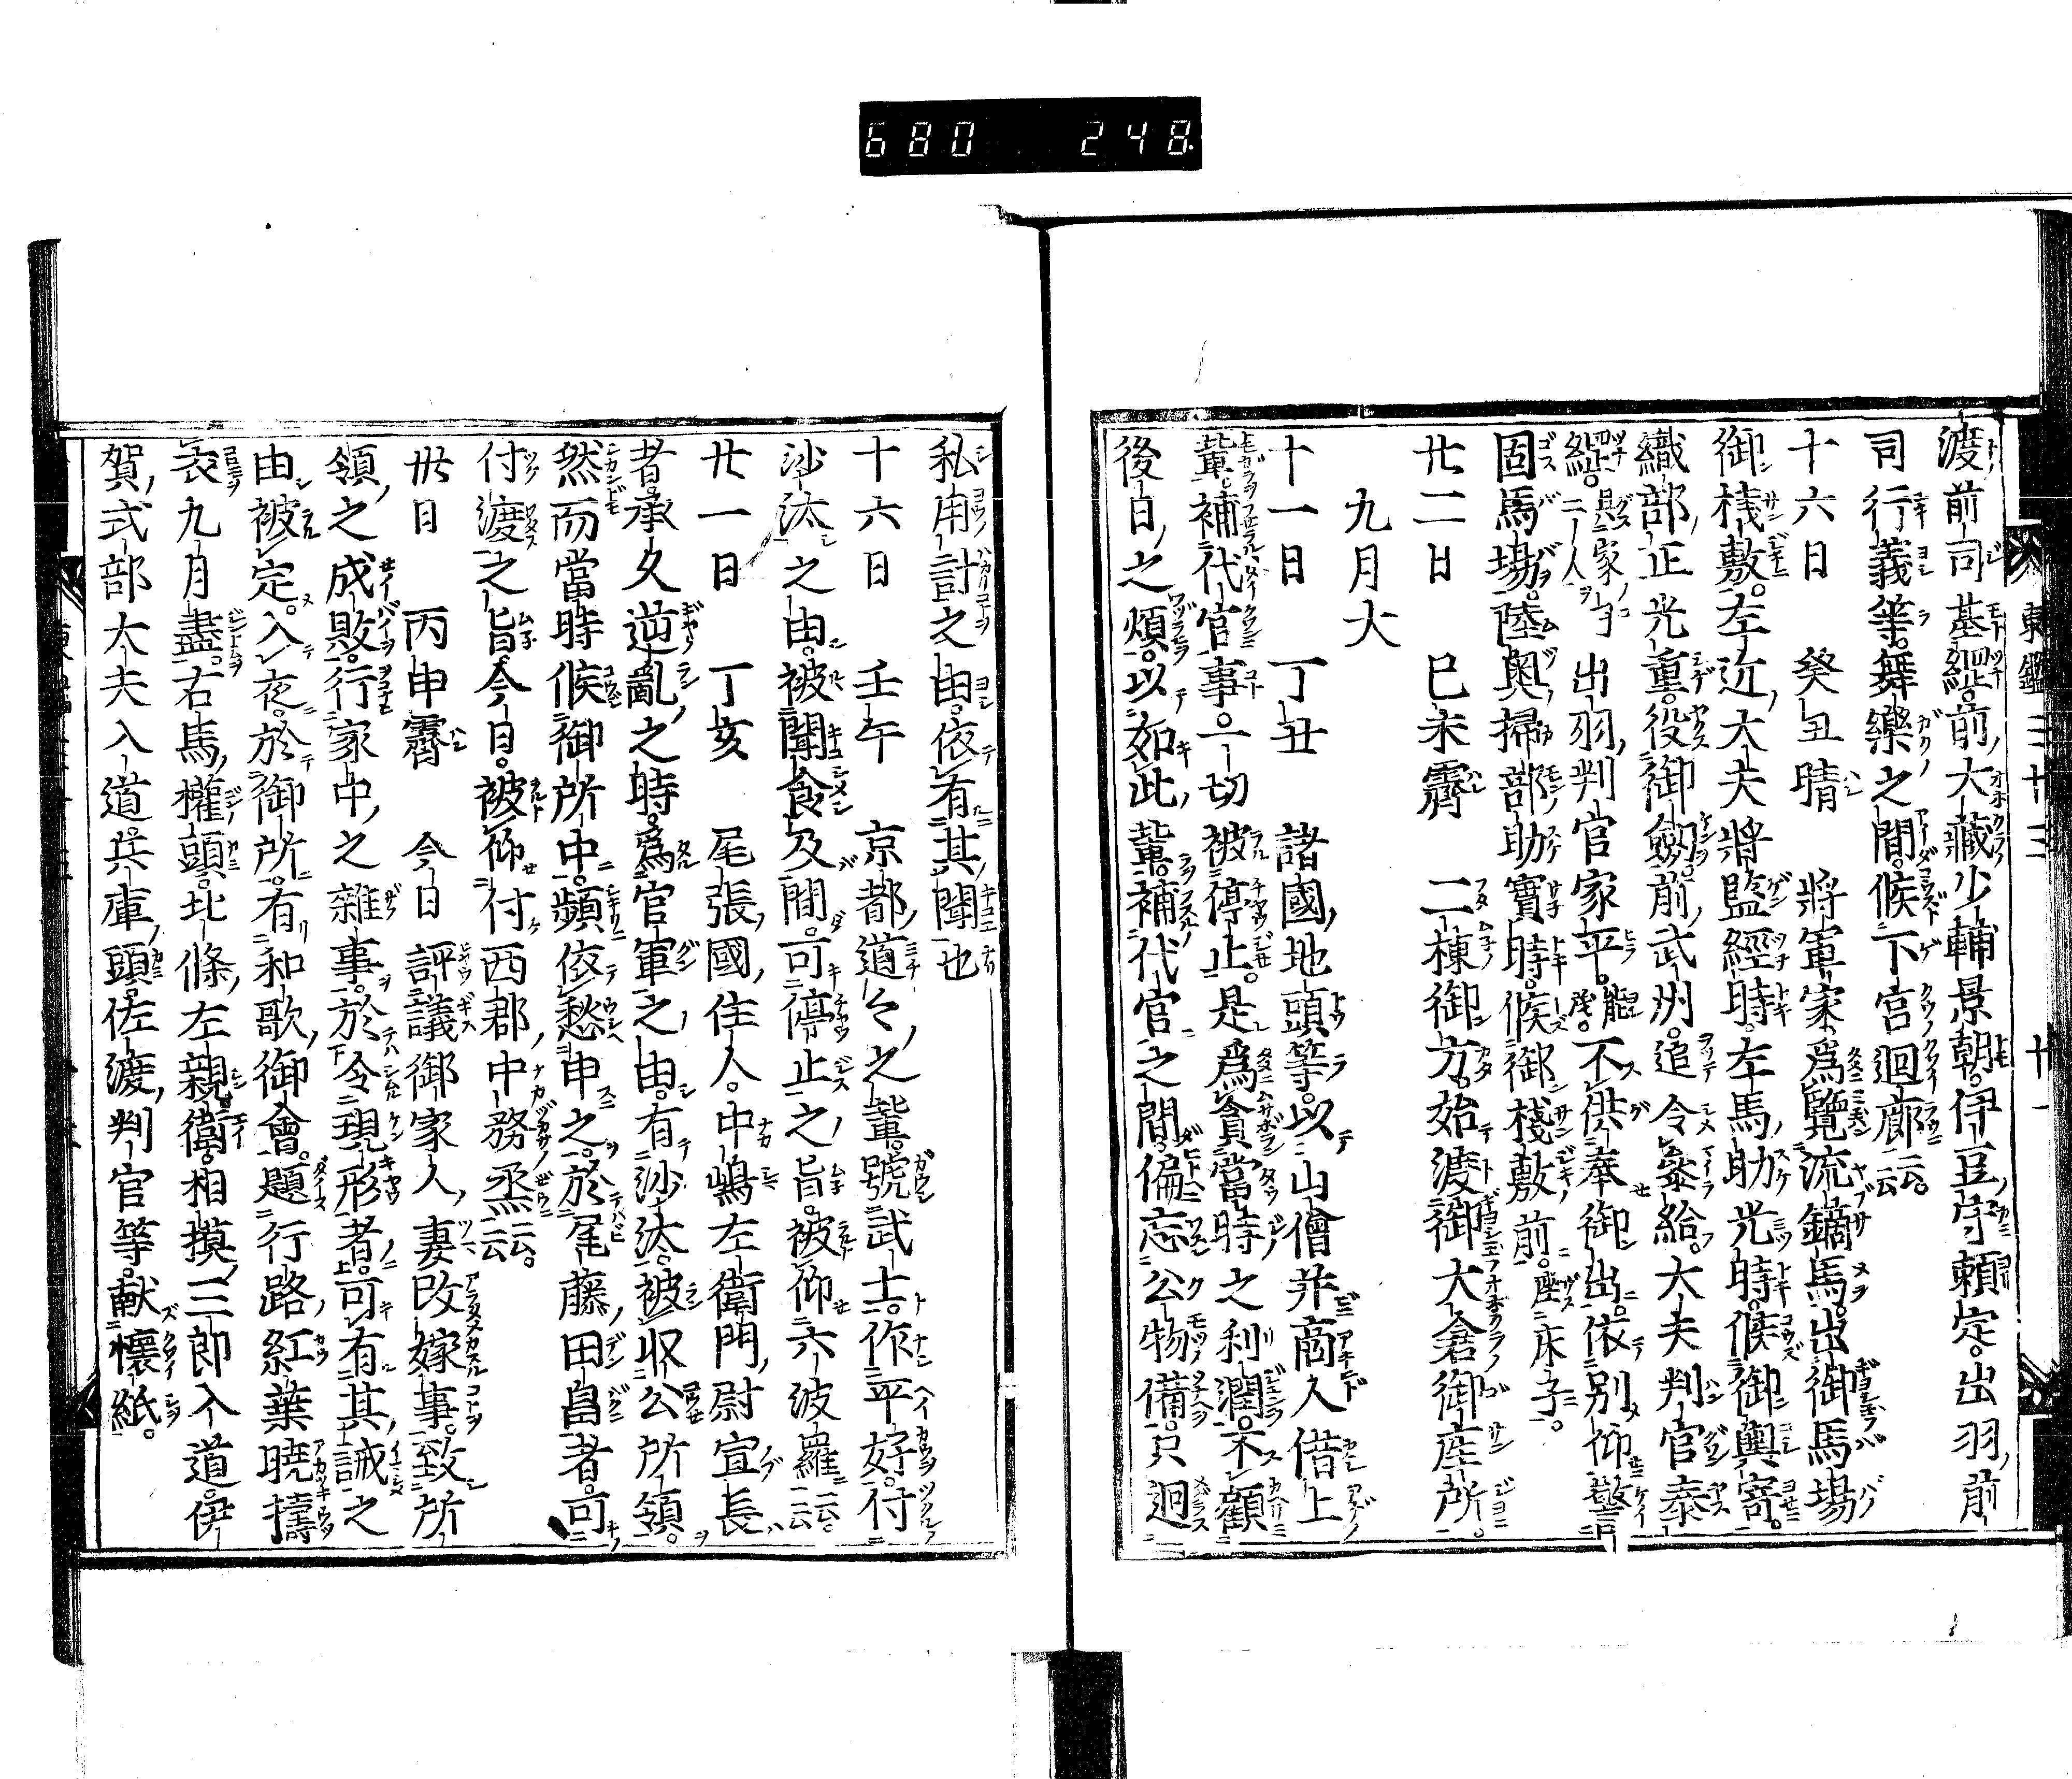 680 248
渡前司基綱。前大藏少輔景朝。伊豆守頼定。出羽前
司行義等。舞樂之間。候下宮迴廊云云。
十六日 癸丑晴 將軍家爲覽流鏑馬。出御馬場
御棧敷。左近大夫將監經時。左馬助光時。候御輿寄。
織部正光重。役御劔。前武州。追令參給。大夫判官泰
綱。具家子二人 出羽判官家平。能登。不供奉御出。依別仰警
固馬場。陸奥掃部助實時。候御棧敷前。座床子。
廿二日 巳未霽 二棟御方。始渡御大倉御座所。
九月大
十一日 丁丑 諸國地頭等。以山僧并商人借上
輩。補代官事。一切被停止。是爲貪當時之利潤。不顧
後日之煩。以如此輩。補代官之間。偏忘公物備。只廻
東鑑 三十三 廿一
私用計之由。依有其聞也
十六日 壬午 京都道々之輩。號武士。作平好。付
沙汰之由。被聞食及間。可停止之旨。被仰六波羅云云。
廿一日 丁亥 尾張國住人。中嶋左衛門尉宣長
者。承久逆亂之時。爲官軍之由。有沙汰。被収公所領。
然而當時候御所中。頻依愁申之。於尾藤田畠者。可
付渡之旨。今日。被仰付西郡中務烝云云。
卅日 丙申霽 今日 評議御家人妻改嫁事。致所
領之成敗。行家中之雜事。於令現形者。可有其誡之
由被定。入夜。於御所。有和歌御會。題行路紅葉曉擣
衣九月盡。右馬權頭。北條左親衛。相摸三郎入道。伊
賀式部大夫入道。兵庫頭。佐渡判官等。献懷紙。